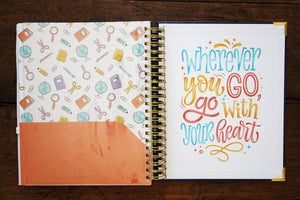 wherever
you GO,
go with
your heart